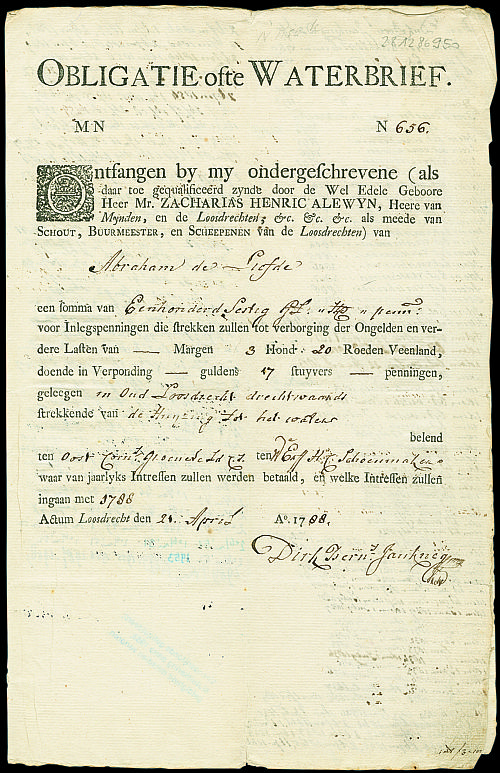 281286950
OBLIGATIE ofte WATERBRIEF.
M N N 656.
Ontfangen by my ondergeschrevene (als
daar toe gequalificeerd zynde door de Wel Edele Geboore
Heer Mr. ZACHARIAS HENRIC ALEWYN, Heere van
Mynden, en de Loosdrechten; &c. &c. &c. als meede van
SCHOUT, BUURMEESTER, en SCHEEPENEN van de Loosdrechten) van
Abraham de Liefde
een somma van Eenhonderd Sestig Gl: " St " penn:
voor Inlegspenningen die strekken zullen tot verborging der Ongelden en ver-
dere Lasten van — Margen 3 Hond 20 Roeden Veenland,
doende in Verponding — guldens 17 stuyvers — penningen,
geleegen in Oud Loosdrecht drechtwaards
strekkende van de Huyzing tot het water
belend
ten Oost Corn: Groeneveld ten West H: C Schoenmaker
waar van jaarlyks Intressen zullen werden betaald, en welke Intressen zullen
ingaan met 1788
Actum Loosdrecht den 21 April Ao. 1788.
Dirk